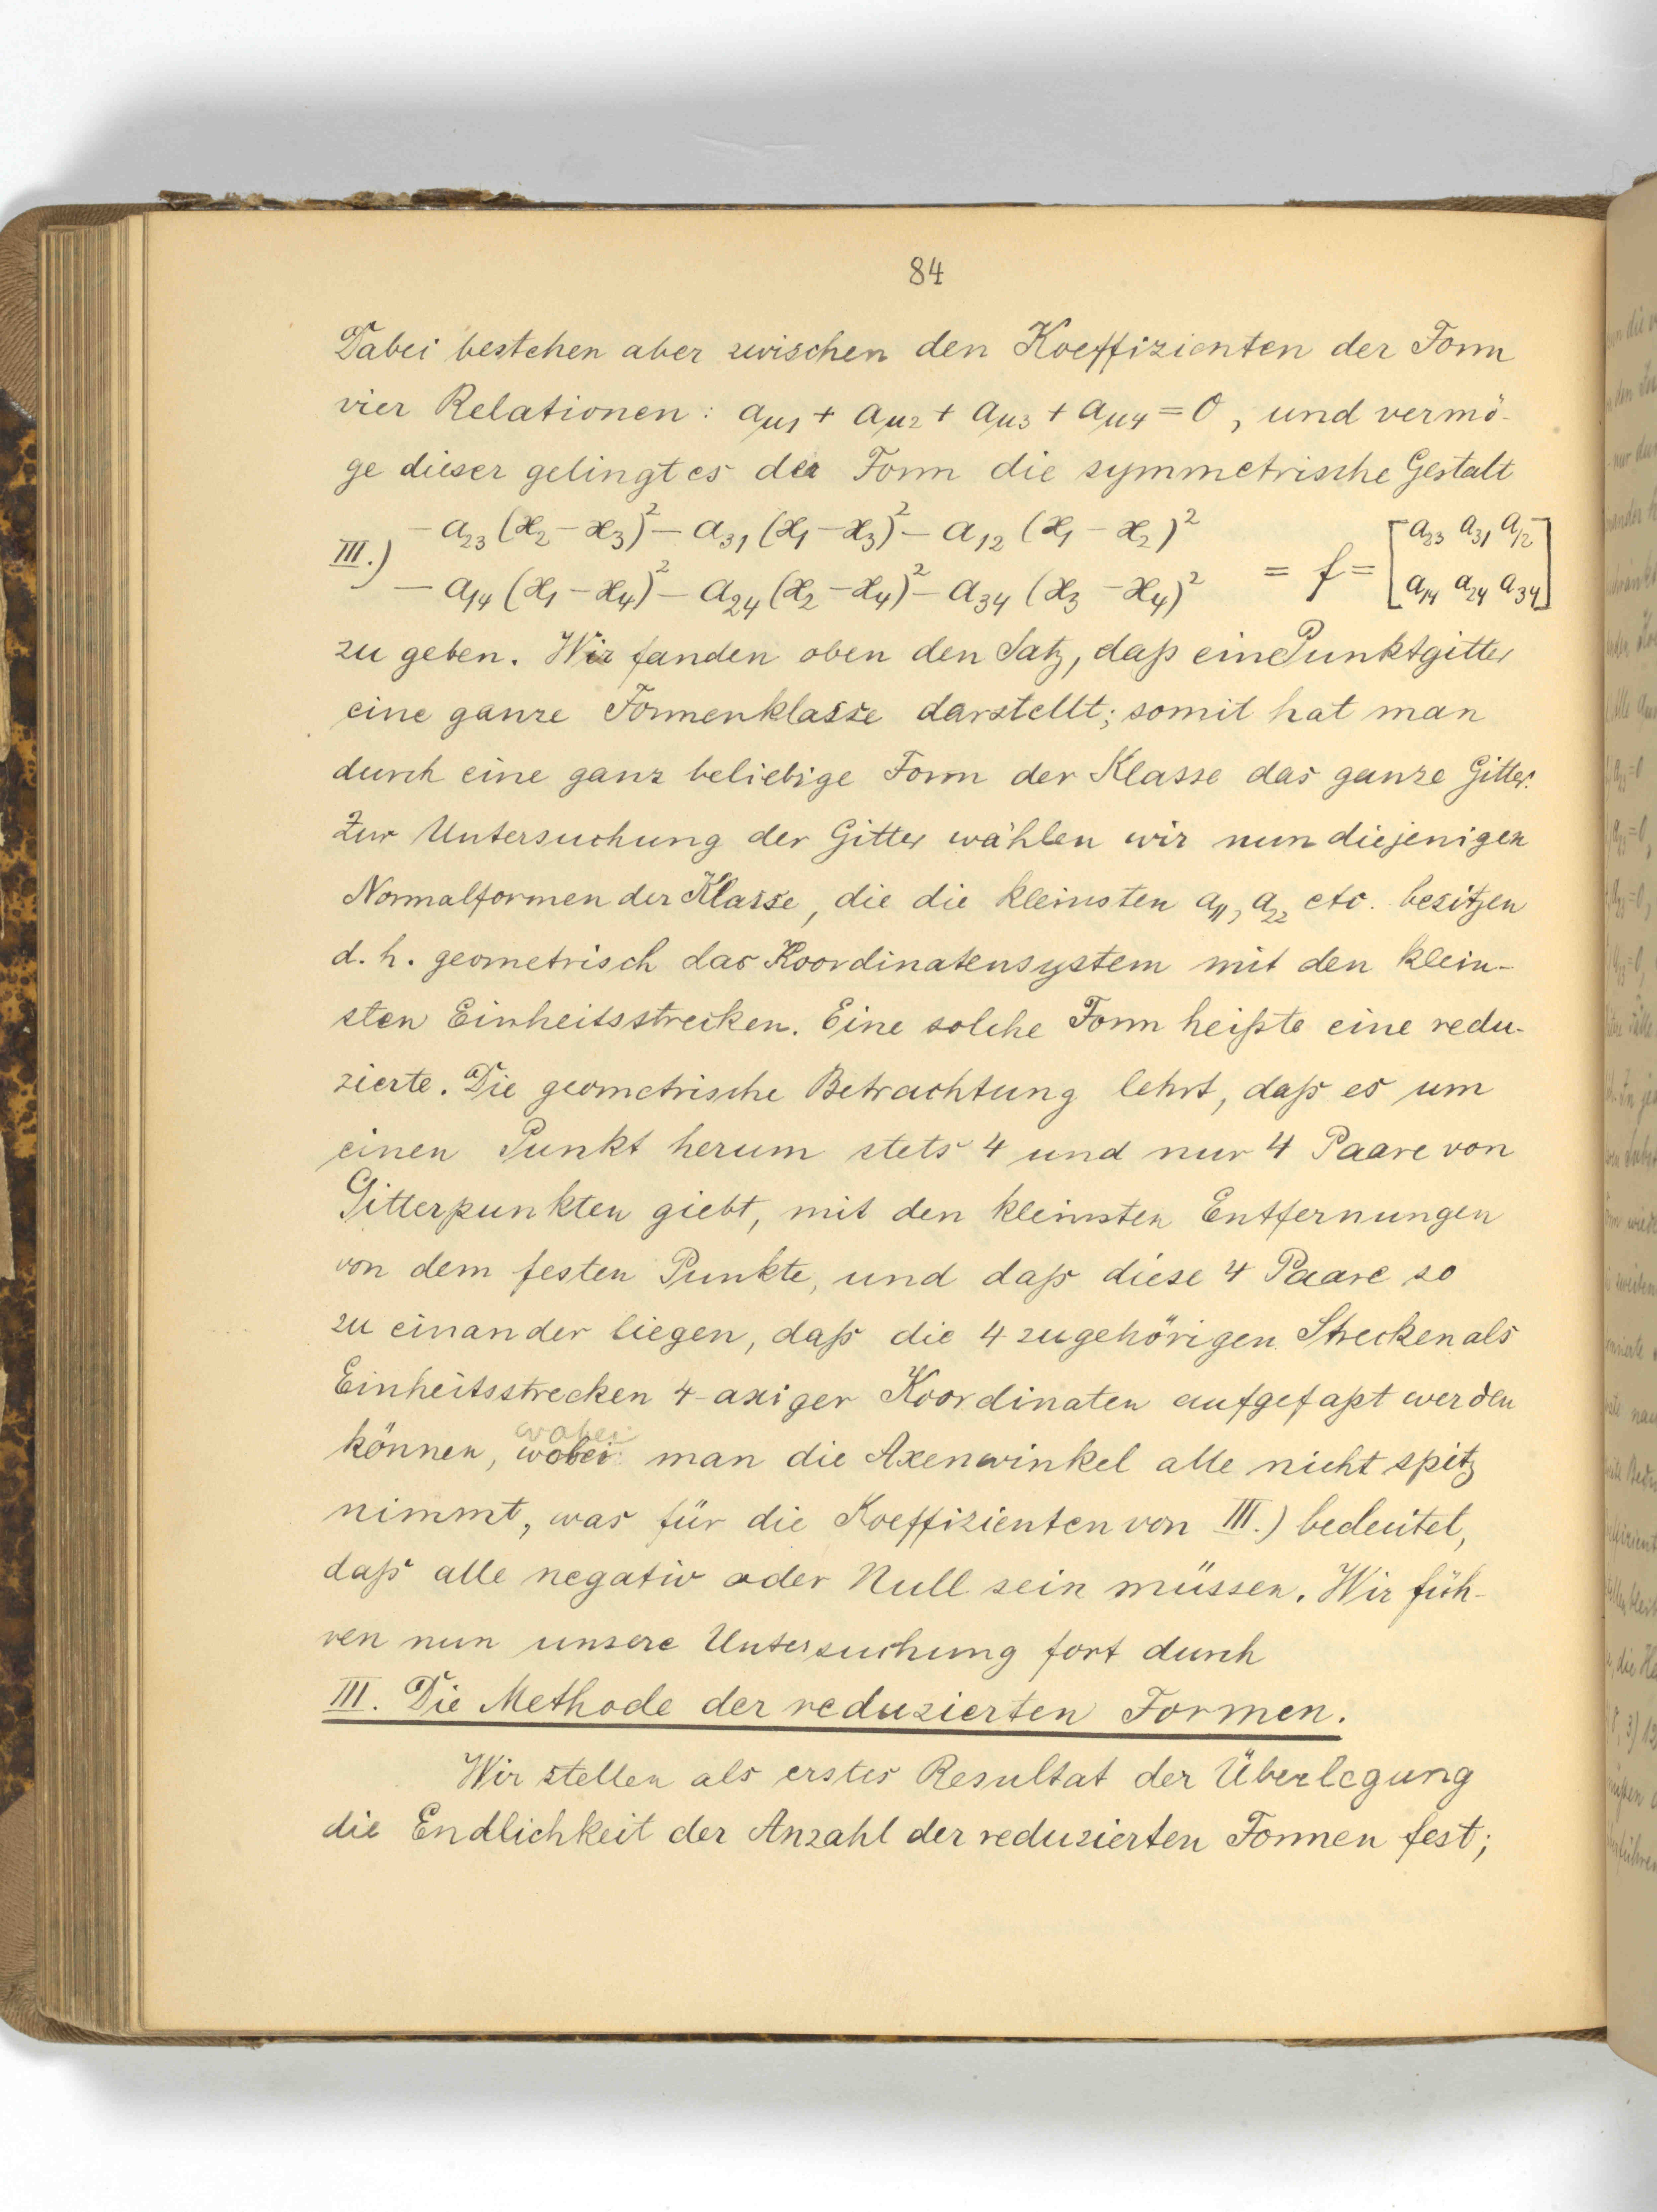 84
Dabei bestehen aber zwischen den Koeffizienten der Form
vier Relationen: aμ1 + aμ2 + aμ3 + aμ4 = 0, und vermö-
ge dieser gelingt es der Form die symmetrische Gestalt
III.) -a₂₃(x₂-x₃)² - a₃₁(x₁-x₃)² - a₁₂(x₁-x₂)²
-a₁₄(x₁-x₄)² - a₂₄(x₂-x₄)² - a₃₄(x₃-x₄)² = f = [a₂₃ a₃₁ a₁₂
a₁₄ a₂₄ a₃₄]
zu geben. Wir fanden oben den Satz, daß ein Punktgitter
eine ganze Formenklasse darstellt; somit hat man
durch eine ganz beliebige Form der Klasse das ganze Gitter.
Zur Untersuchung der Gitter wählen wir nun diejenigen
Normalformen der Klasse, die die kleinsten a₁₁, a₂₂ etc. besitzen
d. h. geometrisch das Koordinatensystem mit den klein-
sten Einheitsstrecken. Eine solche Form heißte eine redu-
zierte. Die geometrische Betrachtung lehrt, daß es um
einen Punkt herum stets 4 und nur 4 Paare von
Gitterpunkten giebt, mit den kleinsten Entfernungen
von dem festen Punkte, und daß diese 4 Paare so
zu einander liegen, daß die 4 zugehörigen Strecken als
Einheitsstrecken 4-axiger Koordinaten aufgefaßt werden
wobei
können, wobei man die Axenwinkel alle nicht spitz
nimmt, was für die Koeffizienten von III.) bedeutet,
daß alle negativ oder Null sein müssen. Wir füh-
ren nun unsere Untersuchung fort durch
III. Die Methode der reduzierten Formen.
Wir stellen als erstes Resultat der Überlegung
die Endlichkeit der Anzahl der reduzierten Formen fest;